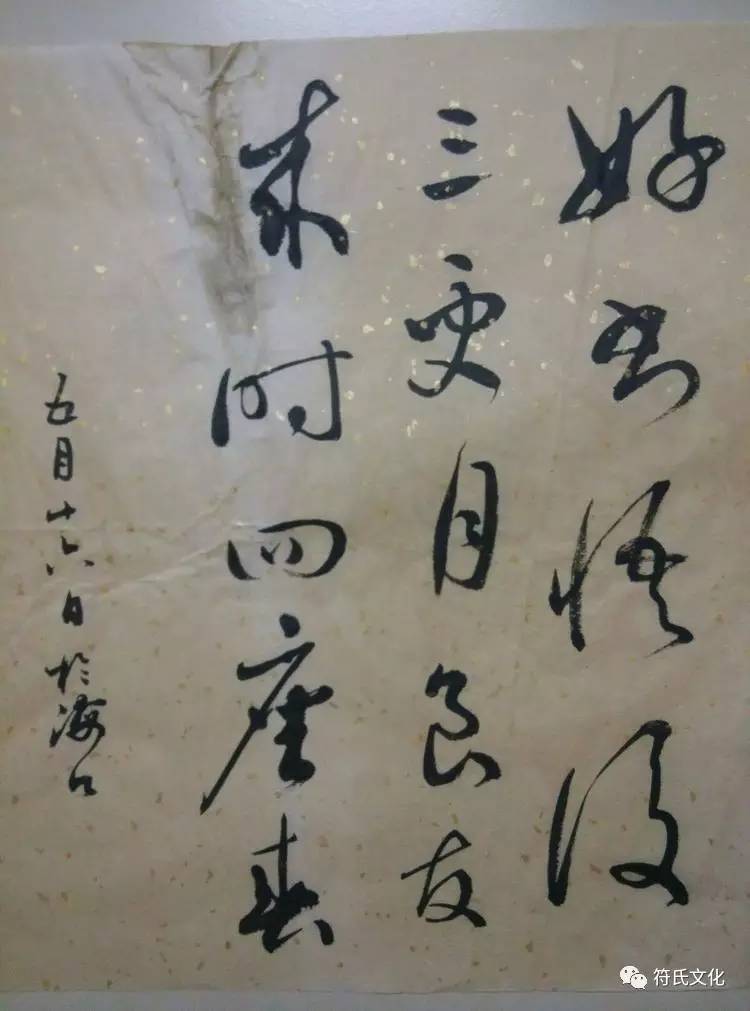 好书悟後
三更月良友
来时四座春
五月十六日於海口
符氏文化